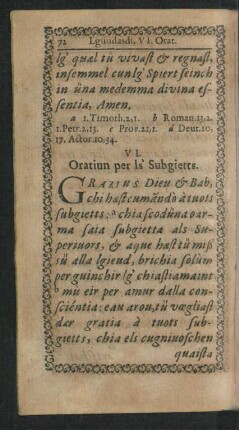 72 Lgiuodasdi, VI. Orat.
lg' qual tü vivast & regnast,
insemmel cun lg' Spiert seinch
in üna medemma divina es-
sentia, Amen.
a 1.Timoth.2,1. b Roman.13.2.
1.Petr.2,13. c Prov.21,1. d Deut.10,
17. Actor.10.34.
VI.
Oratiun per ls' Subgietts.
GRAZIUS Dieu & Bab,
chi hæst cumãndò à tuots
subgietts: a chiascodüna oar-
ma saia subgietta als Su-
periuors, & aque hæst tü miß
sü alla lgieud, brichia solum
per guinchir lg' chiastiamaint
b mu eir per amur dalla con-
sciéntia: eau arou, tü vœgliast
dær gratia à tuots sub-
gietts, chia els cugniuoschen
quaista